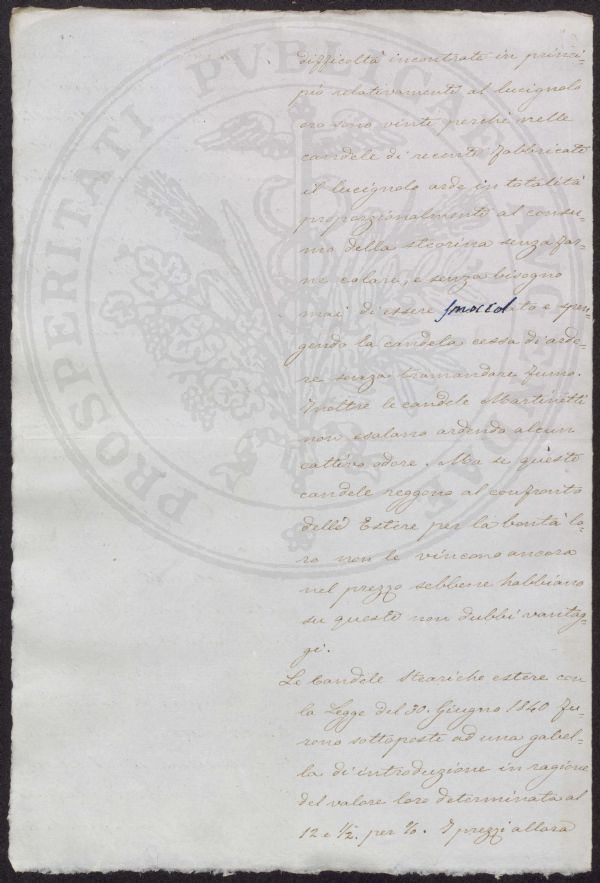 PROSPERITATI PVBLICAE AVGENDAE
difficoltà incontrate in princi-
pio relativamente al lucignolo
ora sono vinte perchè nelle
candele di recente fabbricate
il lucignolo arde in totalità
proporzionalmente al consu-
mo della steorina senza far-
ne colare, e senza bisogno
mai di essere smoccolato e spen-
gendo la candela cessa di arde-
re senza tramandare fumo.
Inoltre le candele Martinetti
non esalano ardendo alcun
cattivo odore. Ma se queste
candele reggono al confronto
delle Estere per la bontà lo-
ro non le vincono ancora
nel prezzo sebbene habbiano
su queste non dubbi vantag-
gi.
Le Candele steariche estere con
la Legge del 30. Giugno 1840 fu-
rono sottoposte ad una gabel-
la di introduzione in ragione
del valore loro determinata al
12 e 1/2. per %. I prezzi allora